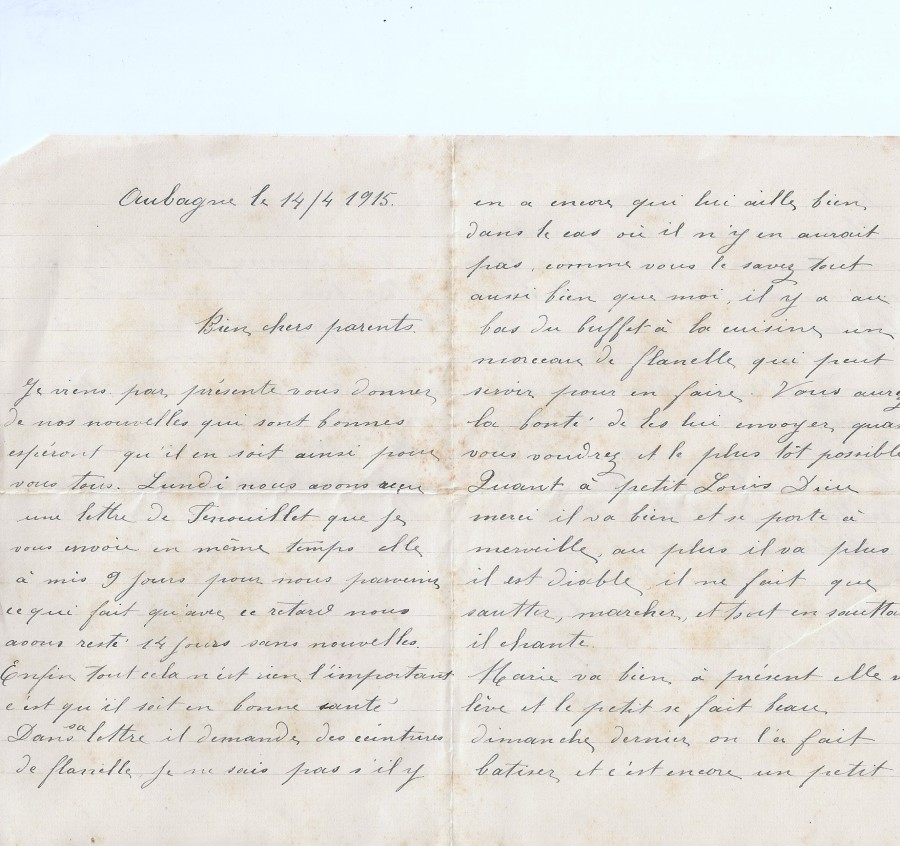 Aubagne le 14/4 1915.
Bien chers parents.
Je viens par présente vous donner
de nos nouvelles qui sont bonnes
espéront qu'il en soit ainsi pour
vous tous. Lundi nous avons reçu
une lettre de Fenouillet que je
vous envoie en même temps elle
à mis 9 jours pour nous parvenir
ce qui fait qu'avec ce retard nous
avons resté 14 jours sans nouvelles.
Enfin tout cela n'est rien l'important
c'est qu'il soit en bonne santé
Dans sa lettre il demande des ceintures
de flanelle je ne sais pas s'il y
en a encore qui lui aille bien
dans le cas où il n'y en aurait
pas, comme vous le savez tout
aussi bien que moi, il y a au
bas du buffet à la cuisine un
morceau de flanelle qui peut
servir pour en faire. Vous aurez
la bonté de les lui envoyer quan
vous voudrez et le plus tôt possible
Quant à petit Louis Dieu
merci il va bien et se porte à
merveille, au plus il va plus
il est diable il ne fait que
sautter, marcher, et tout en sautta
il chante.
Marie va bien à présent elle
lève et le petit se fait beau
dimanche dernier on l'a fait
batiser et c'est encore un petit